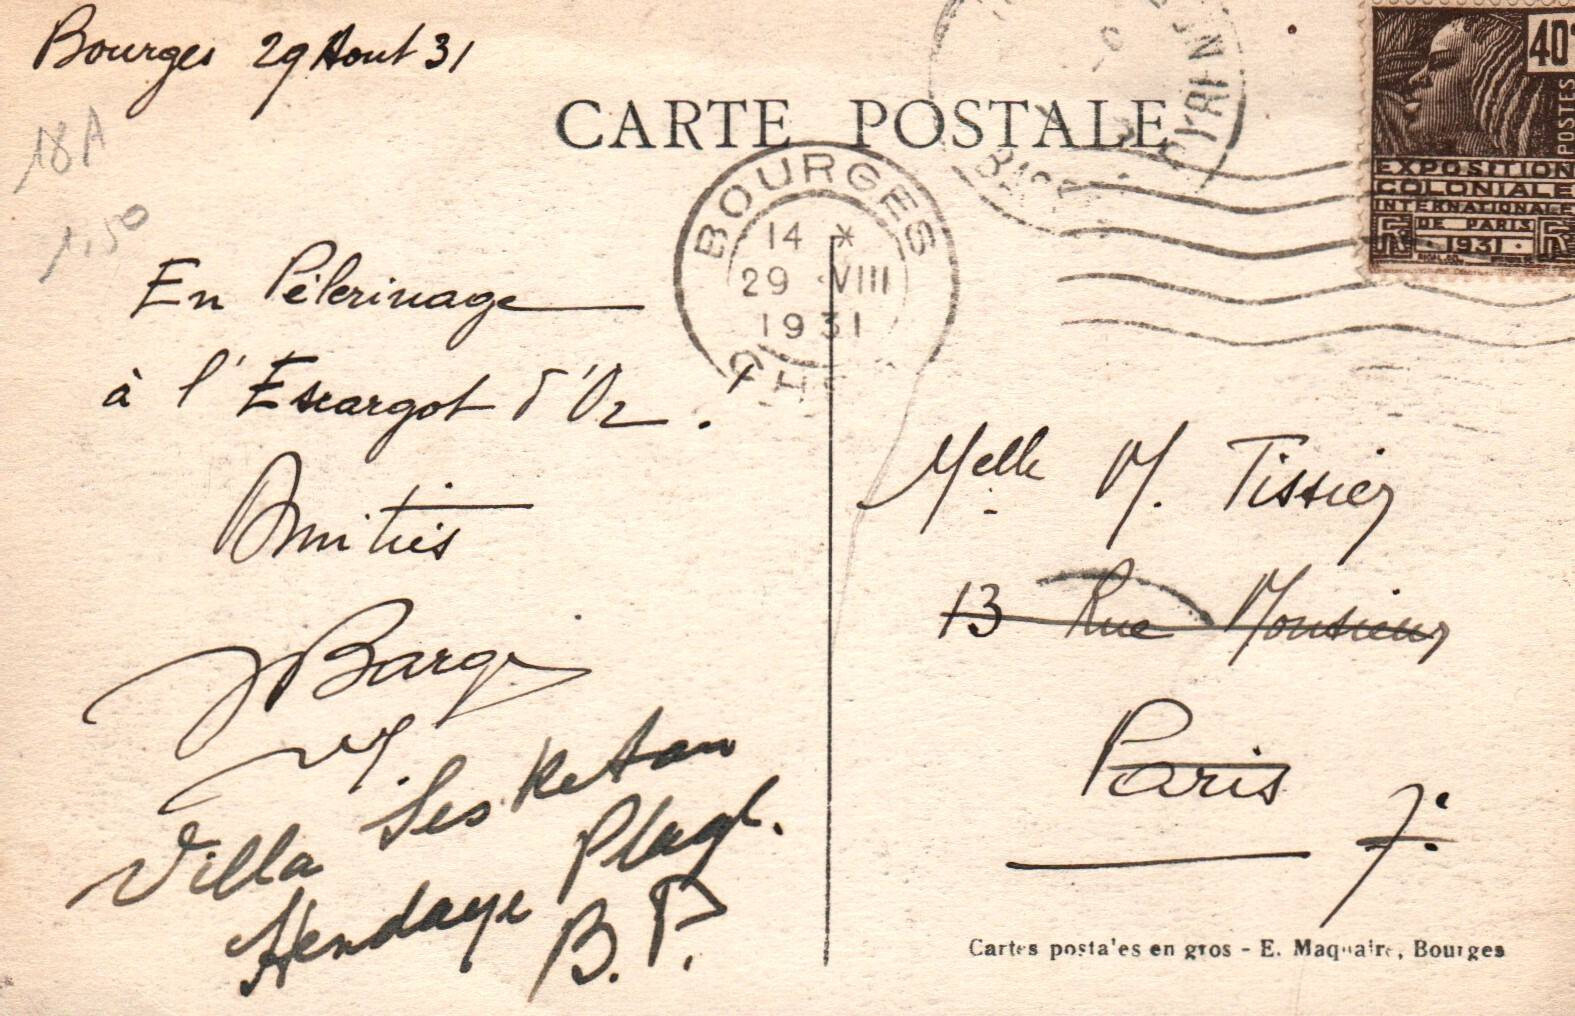 Bourges 29 Aout 31
18A
1,50
CARTE POSTALE
BOURGES
14 *
29 VIII
1931
CHER
40c
POSTES
EXPOSITION
COLONIALE
INTERNATIONALE
DE PARIS
1931
RF RF
En Pélerinage
à l'Escargot d'Or.
Amitiés
Melle M. Tissier
13 Rue Monsieur
Paris 7:
Villa
Hendaye Plage.
B. P.
Cartes postales en gros - E. Maquaire, Bourges